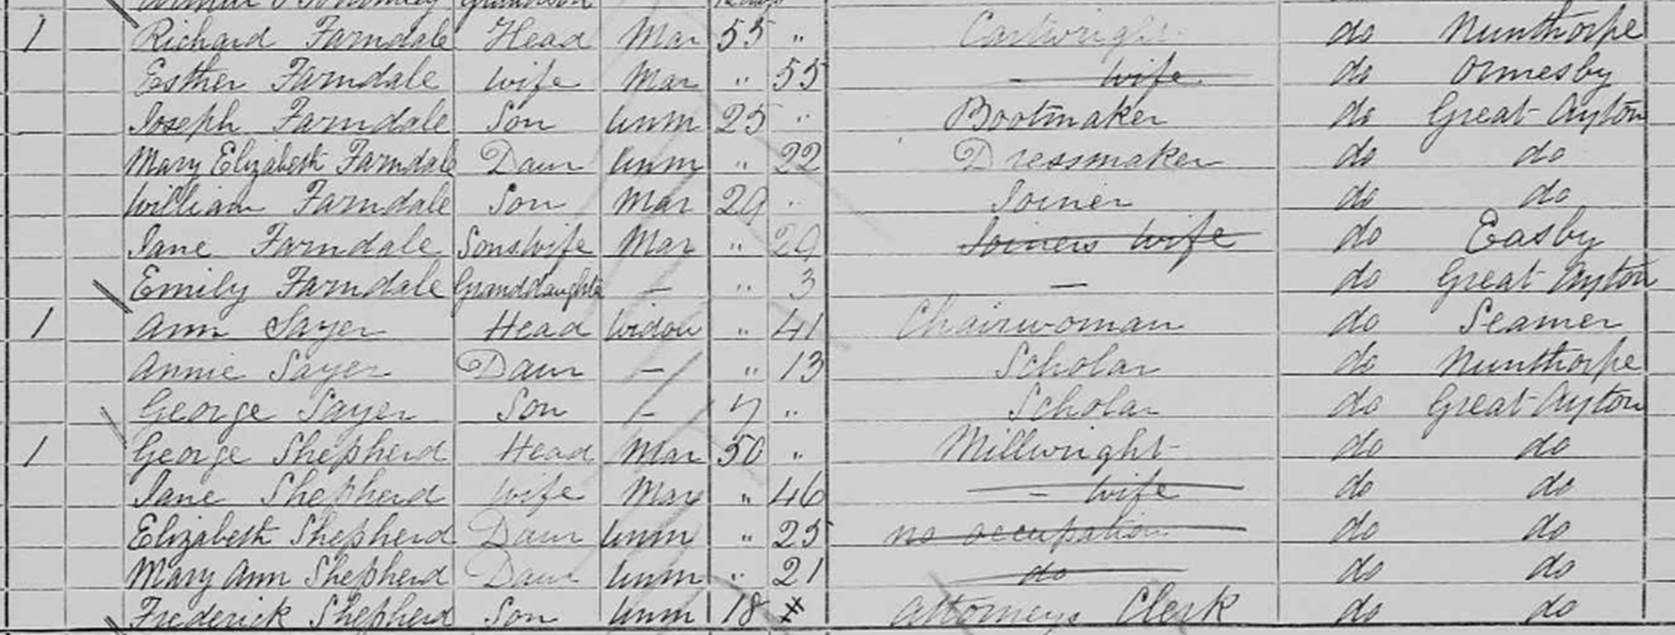 Grandson
1 Richard Farndale Head Mar 55 " Cartwright do Nunthorpe
Esther Farndale Wife Mar " 55 - wife do Ormesby
Joseph Farndale Son Unm 25 " Bootmaker do Great Ayton
Mary Elizabeth Farndale Daur Unm " 22 Dressmaker do do
William Farndale Son Mar 29 " Joiner do do
Jane Farndale Sons wife Mar " 29 Joiners Wife do Easby
Emily Farndale Granddaughter - " 3 - do Great Ayton
1 Ann Sayer Head Widow " 41 Chairwoman do Seamer
Annie Sayer Daur - " 13 Scholar do Nunthorpe
George Sayer Son - 7 " Scholar do Great Ayton
1 George Shepherd Head Mar 50 " Millwright do do
Jane Shepherd Wife Mar " 46 - wife do do
Elizabeth Shepherd Daur Unm " 25 no occupation do do
Mary Ann Shepherd Daur Unm " 21 do do do
Frederick Shepherd Son Unm 18 Attorneys Clerk do do